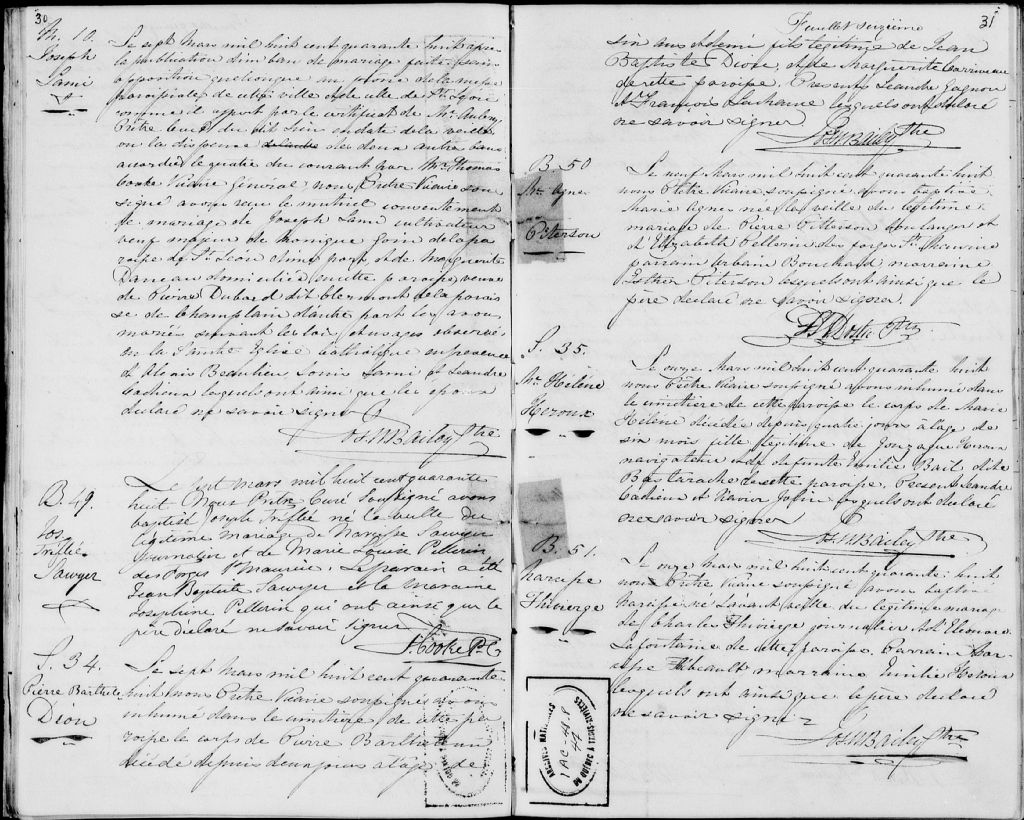 30
M. 10.
Joseph
Lami
Le sept Mars mil huit cent quarante huit après
la publication d'un ban de mariage faite sans
opposition quelconque au prône de la messe
paroissiale de cette ville et de celle de St Léon
comme il appert par le certificat de Mr Aubry
Prêtre Curé du dit lieu en date de la veille
vu la dispense des deux autres bans
accordée le quatre du courant par Mr. Thomas
Cooke Vicaire Général nous Prêtre Vicaire sous
signé avons reçu le mutuel consentement
de mariage de Joseph Lami cultivateur
veuf majeur de Monique de la pa
roisse de St. Léon d'une part et de Marguerite
domiciliée en cette paroisse veuve
de Pierre dit Clermont de la parois
se de Champlain d'autre part les avons
mariés suivant les lois et usages observés
en la Sainte Eglise Catholique en présence
d'Alexis Beaulieu Louis Lami et Leandre
Cadieux lesquels ont ainsi que les époux
déclaré ne savoir signer
Jos M Bailey Ptre
B. 49.
Jos
Trifflé
Sawyer
Le sept mars mil huit cent quarante
huit Nous Prêtre Curé Soussigné avons
baptisé Joseph Trifflé né la veille du
légitime mariage de Narcisse Sawyer
Journalier et de Marie Louise Pellerin
des Forges St Maurice. Le parain a été
Jean Baptiste Sawyer et la maraine
Josephine Pellerin qui ont ainsi que le
père déclaré ne savoir signer
T. Cooke P. C
S. 34.
Pierre Barthele
Dion
Le sept Mars mil huit cent quarante
huit nous Prêtre Vicaire soussigné avons
inhumé dans le cimetière de cette pa
roisse le corps de Pierre
décédé depuis deux jours à l'âge de
31
Feuillet seizième
six ans et demi fils légitime de Jean
Baptiste Dion et de Marguerite Lariviere
de cette paroisse. Présents Leandre Gagnon
et François Duchaine lesquels ont déclaré
ne savoir signer
Jos M Bailey Ptre
B. 50
Mie Agnes
Piterson
Le neuf Mars mil huit cent quarante huit
nous Prêtre Vicaire soussigné avons baptisé
Marie Agnes née la veille du légitime
mariage de Pierre Pitterson boulanger et
d'Elizabeth Pellerin des forges St. Maurice
parrain Urbain Bouchard marraine
Esther Piterson lesquels ont ainsi que le
père déclaré ne savoir signer.
Ptre
S. 35.
Mie Hélène
Heroux
Le onze Mars mil huit cent quarante huit
nous Prêtre Vicaire soussigné avons inhumé dans
le cimetière de cette paroisse le corps de Marie
Hélène décédée depuis quatre jours à l'âge de
six mois fille légitime de Gonzague Heroux
navigateur et de défunte Emilie Bail dite
Bastarache de cette paroisse. Présents Leandre
Cadieux et Xavier lesquels ont déclaré
ne savoir signer
Jos M Bailey Ptre
B. 51.
Narcisse
Thivierge
Le onze Mars mil huit cent quarante huit
nous Prêtre Vicaire soussigné avons baptisé
Narcisse né l'avant veille du légitime mariage
de Charles Thivierge journalier et d'Eleonore
Lafontaine de cette paroisse. Parrain Nar
cisse Thibeault marraine Emilie Heroux
lesquels ont ainsi que le père déclaré
ne savoir signer
Jos M Bailey Ptre
ARCHIVES NATIONALES
1 AC-48.8
42
DU QUÉBEC À TROIS-RIVIÈRES